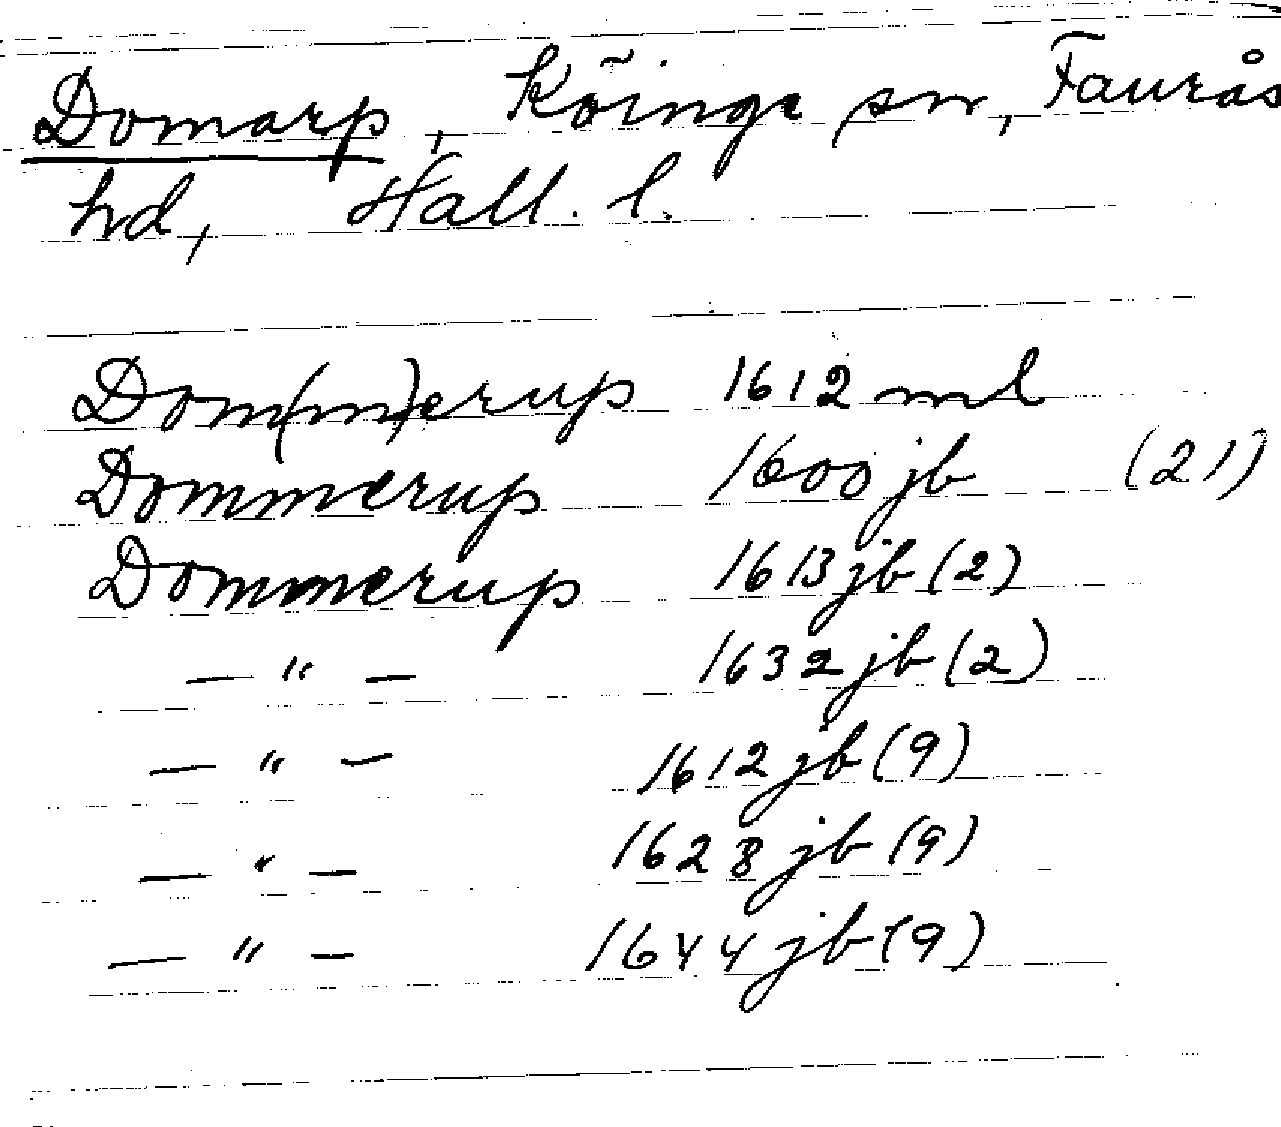 Domarp, Köinge sn, Faurås
hd, Hall. l.
Dom(m)erup 1612 ml
Dommerup 1600 jb (21)
Dommerup 1613 jb (2)
— " — 1632 jb (2)
— " — 1612 jb (9)
— " — 1628 jb (9)
— " — 1644 jb (9)